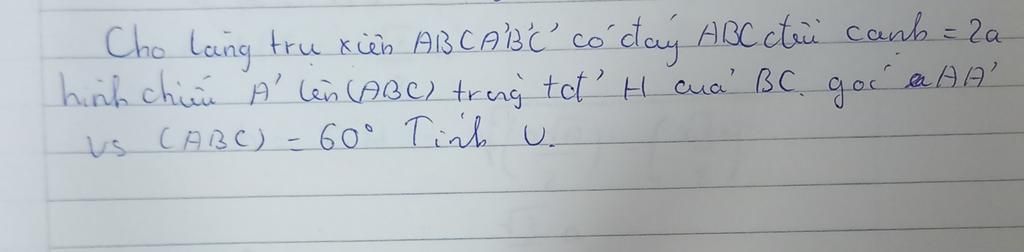 Cho lăng trụ xiên ABCA'B'C' có đáy ABC đều cạnh = 2a
hình chiếu A' lên (ABC) trùng tđ' H của BC. góc AA'
vs (ABC) = 60° Tính V.